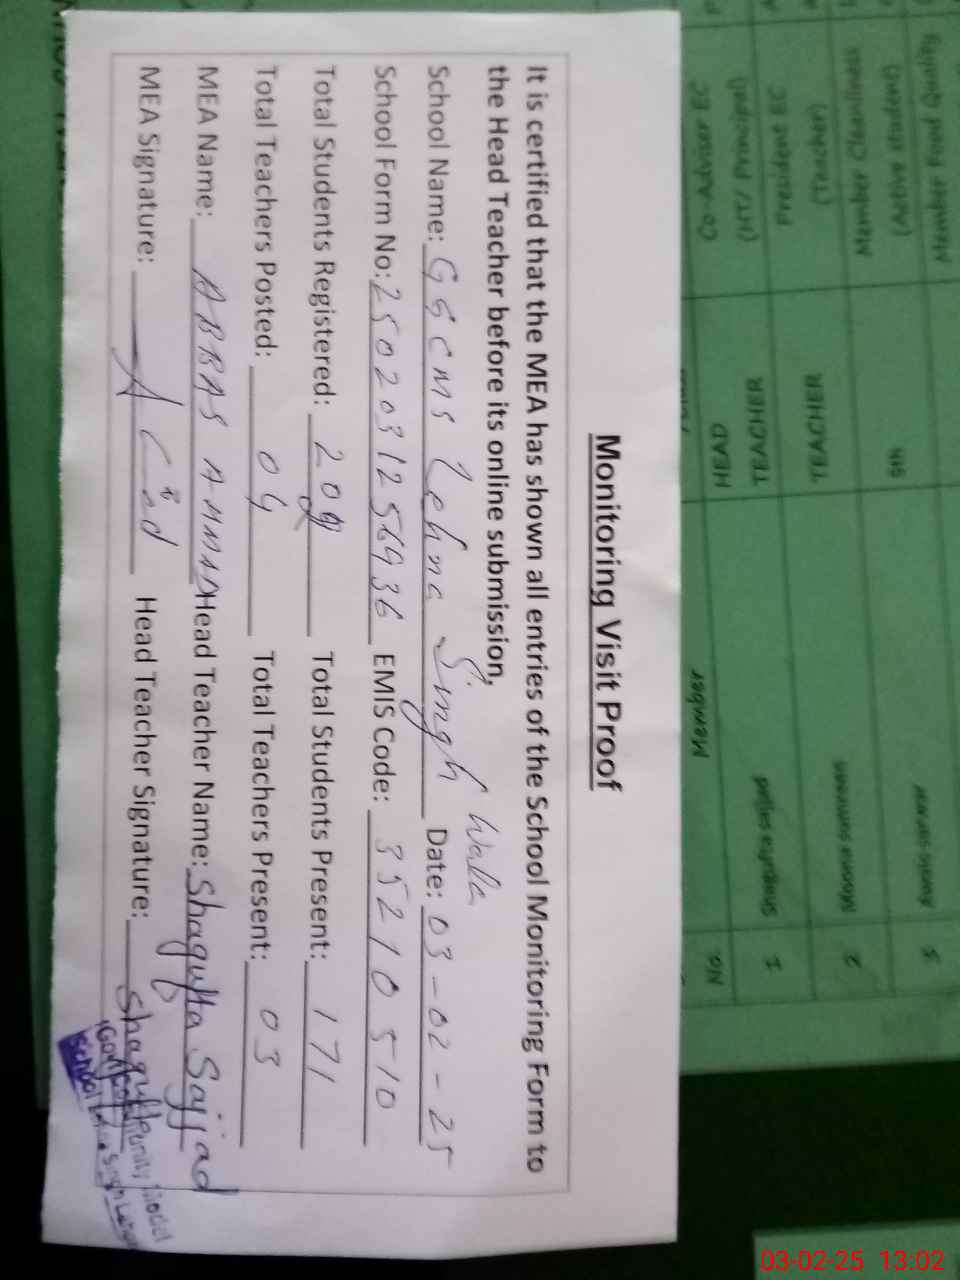 Monitoring Visit Proof
It is certified that the MEA has shown all entries of the School Monitoring Form to
the Head Teacher before its online submission.
School Name: GGCMS Lehna Singh Wala Date: 03-02-25
School Form No: 2502031256936 EMIS Code: 35210510
Total Students Registered: 209 Total Students Present: 171
Total Teachers Posted: 04 Total Teachers Present: 03
MEA Name: ABBAS AHMAD Head Teacher Name: Shagufta Sajjad
MEA Signature: Head Teacher Signature: Shagufta
Model
School Singh
No
Member
HEAD
CO-Advisor EC
(HT/ Principal)
1
Shagufta sajjad
TEACHER
President EC
(Teacher)
2
TEACHER
Member Cleanliness
(Active student)
3
Member
03-02-25 13:02